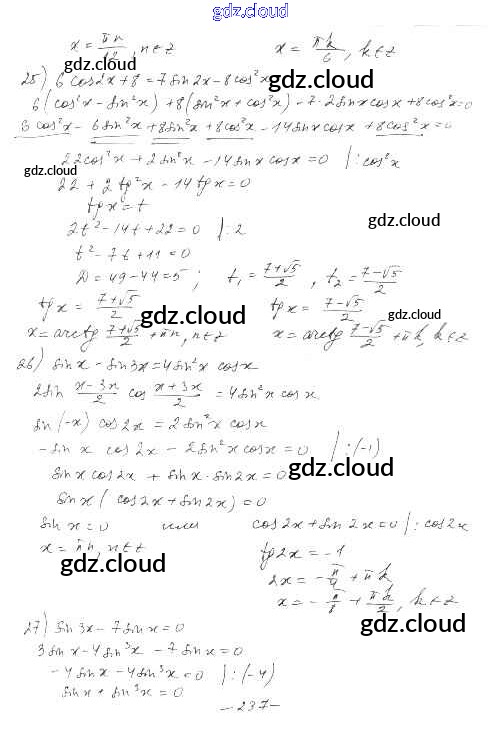 gdz.cloud
gdz.cloud
x = πn/18, n∈z x = πk/6, k∈z
gdz.cloud
25) 6cos2x+8=7sin2x-8cos²x
gdz.cloud
6(cos²x-sin²x)+8(sin²x+cos²x)-7·2sinxcosx+8cos²x=0
6cos²x-6sin²x+8sin²x+8cos²x-14sinxcosx+8cos²x=0
22cos²x+2sin²x-14sinxcosx=0 |:cos²x
gdz.cloud
22+2tg²x-14tgx=0
tgx=t
gdz.cloud
2t²-14t+22=0 |:2
t²-7t+11=0
D=49-44=5; t₁=(7+√5)/2, t₂=(7-√5)/2
tgx=(7+√5)/2 tgx=(7-√5)/2
gdz.cloud
gdz.cloud
x=arctg (7+√5)/2+πn, n∈z x=arctg (7-√5)/2+πk, k∈z
26) sinx-sin3x=4sin²x cosx
2sin (x-3x)/2 cos (x+3x)/2=4sin²x cosx
sin(-x)cos2x=2sin²x cosx
-sinx cos2x-2sin²x cosx=0 |:(-1)
sinxcos2x+sinx·sin2x=0
gdz.cloud
sinx(cos2x+sin2x)=0
sinx=0 или cos2x+sin2x=0 |:cos2x
x=πn, n∈z tg2x=-1
gdz.cloud
2x=-π/4+πk
x=-π/8+πk/2, k∈z
gdz.cloud
27) sin3x-7sinx=0
3sinx-4sin³x-7sinx=0
-4sinx-4sin³x=0 |:(-4)
sinx+sin³x=0
gdz.cloud
-237-